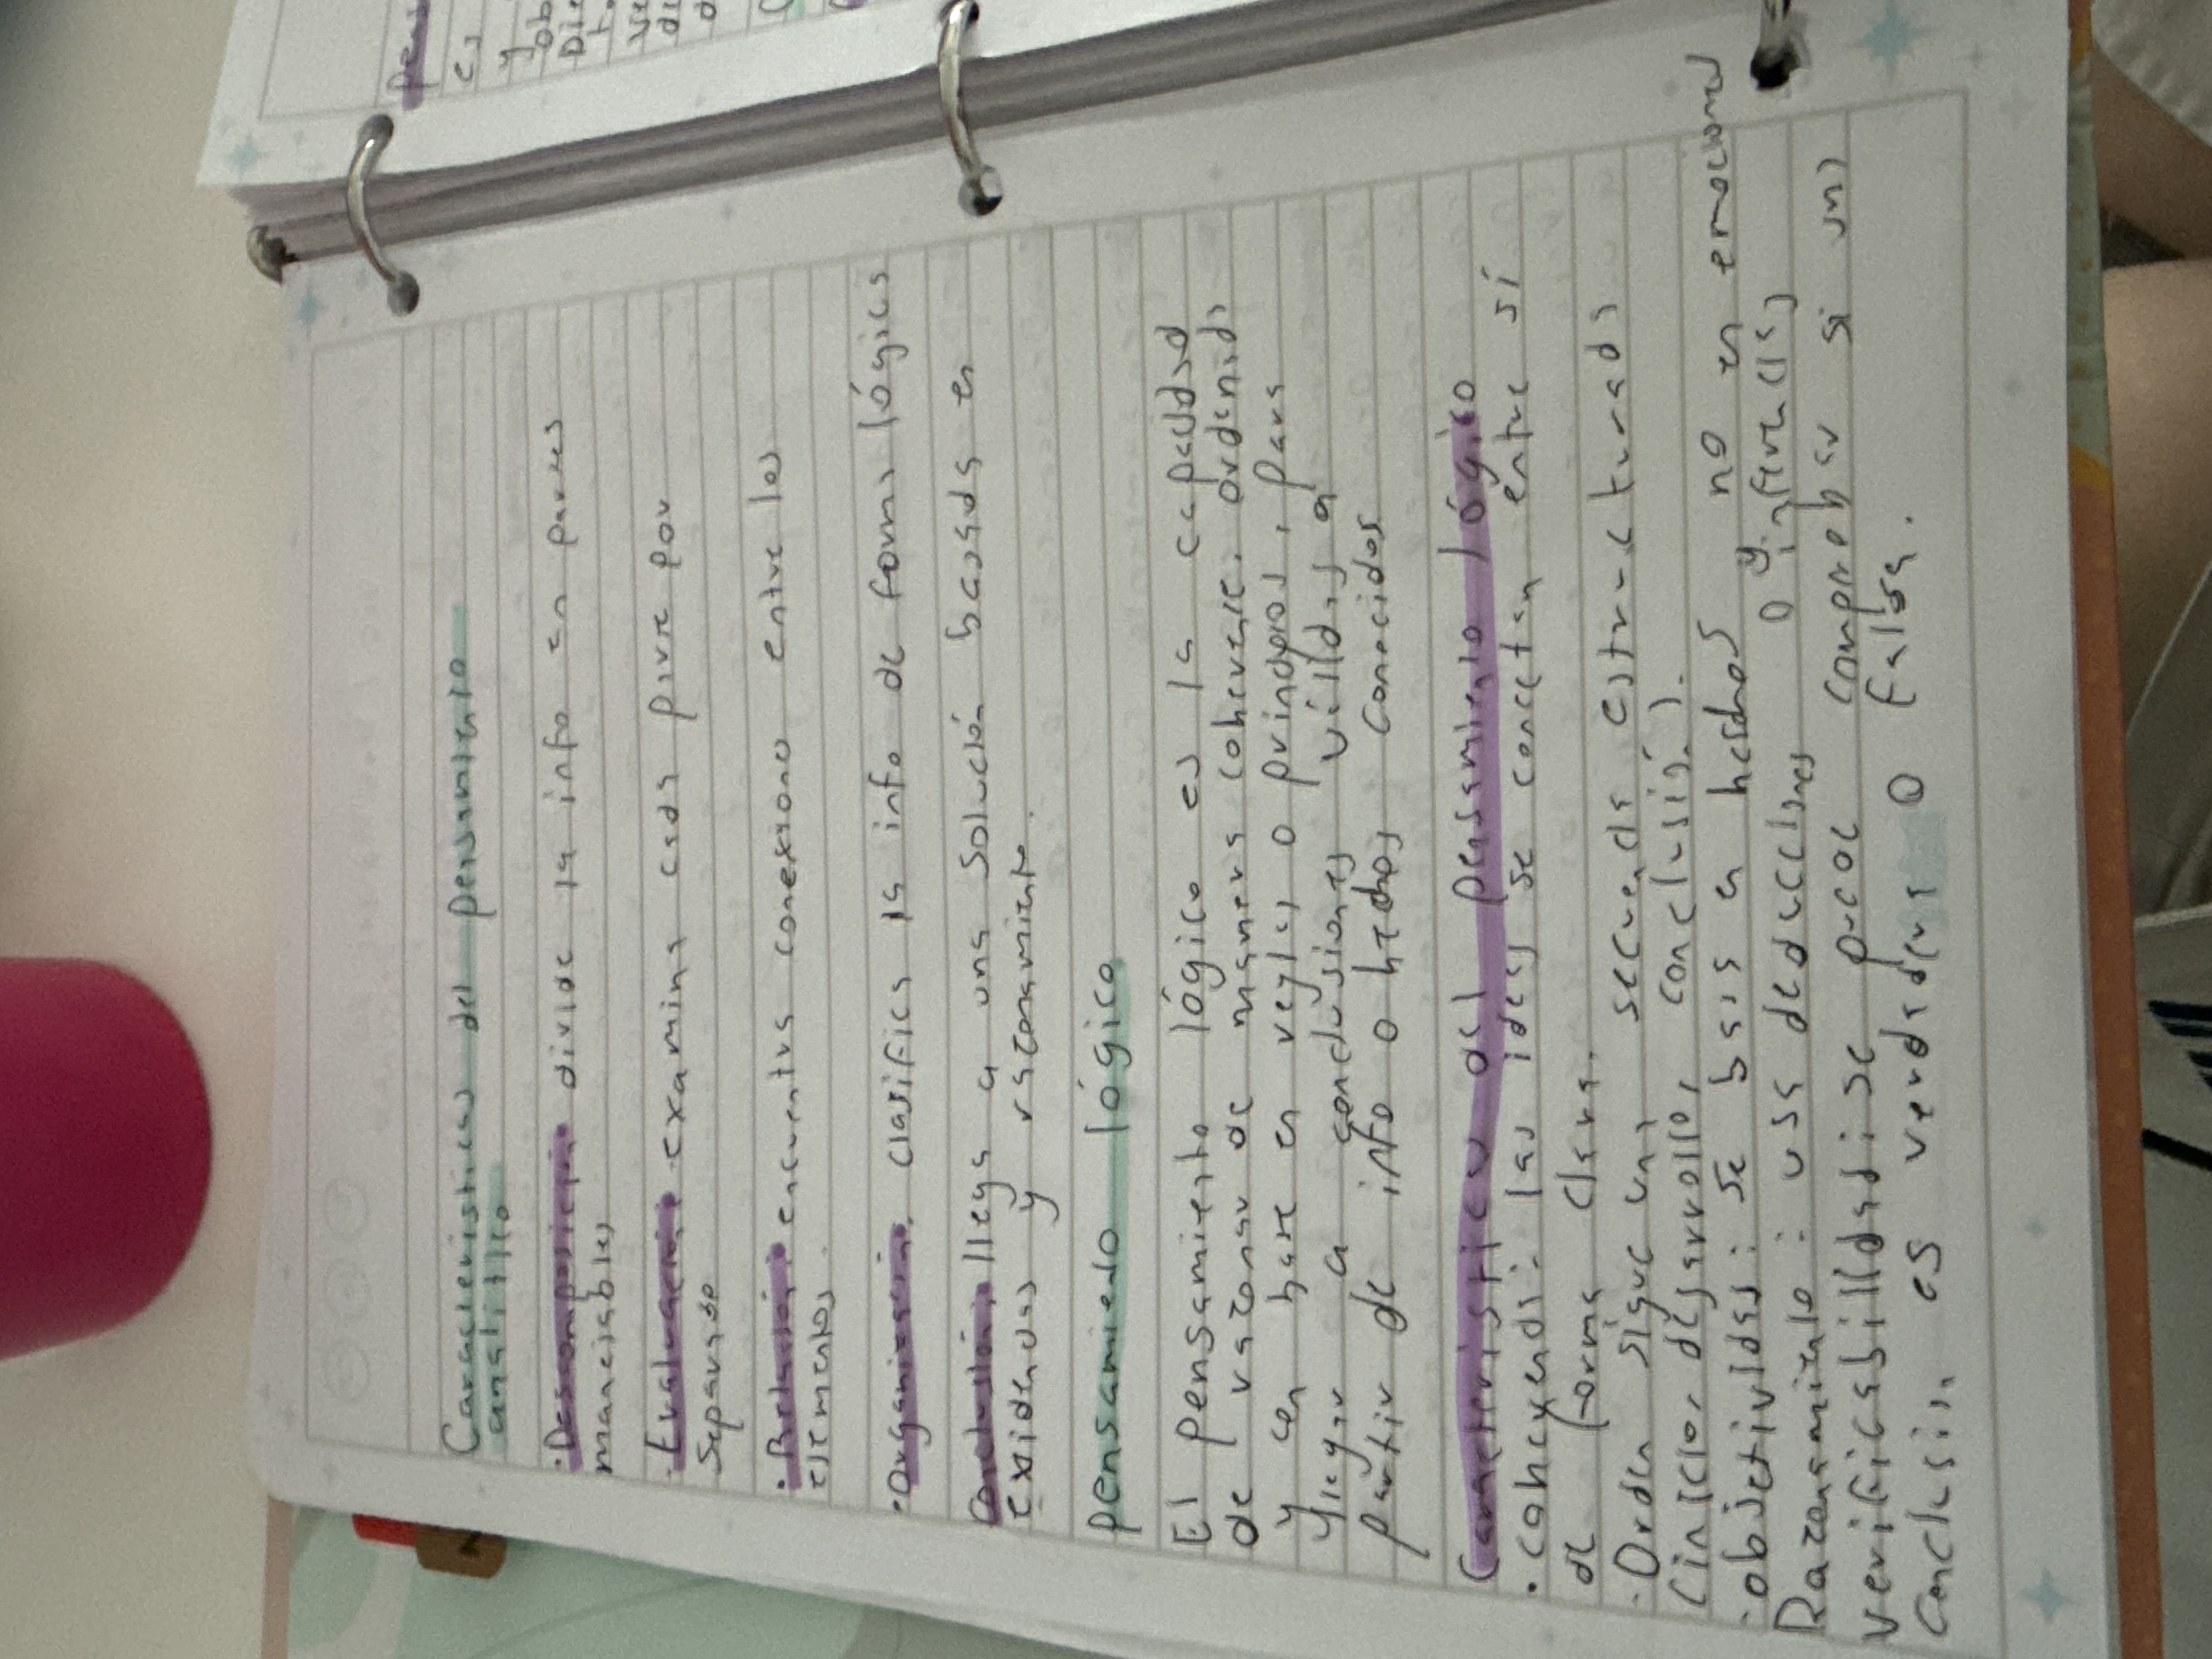 Características del pensamiento
analítico
· Descomposición divide la info en partes
manejables
· Evaluación examina cada parte por
separado
· Relación encuentra conexiones entre los
elementos.
· Organización, clasifica la info de forma lógica
Conclusión llega a una solución basada en
exidencias y razonamiento.
pensamiento lógico
El pensamiento lógico es la capacidad
de razonar de manera coherente, ordenada
y en base en reglas o principios, para
llegar a conclusiones válidas a
partir de info o hechos conocidos
Características del pensamiento lógico
· coherencia: las ideas se conectan entre sí
de forma clara.
· Orden sigue una secuencia estructurada
(inicio, desarrollo, conclusión).
· objetividad: se basa en hechos no en emociones
Razonamiento: usa deducciones o y inferencias
verificabilidad: se puede comprobar si una
conclusión es verdadera o falsa.